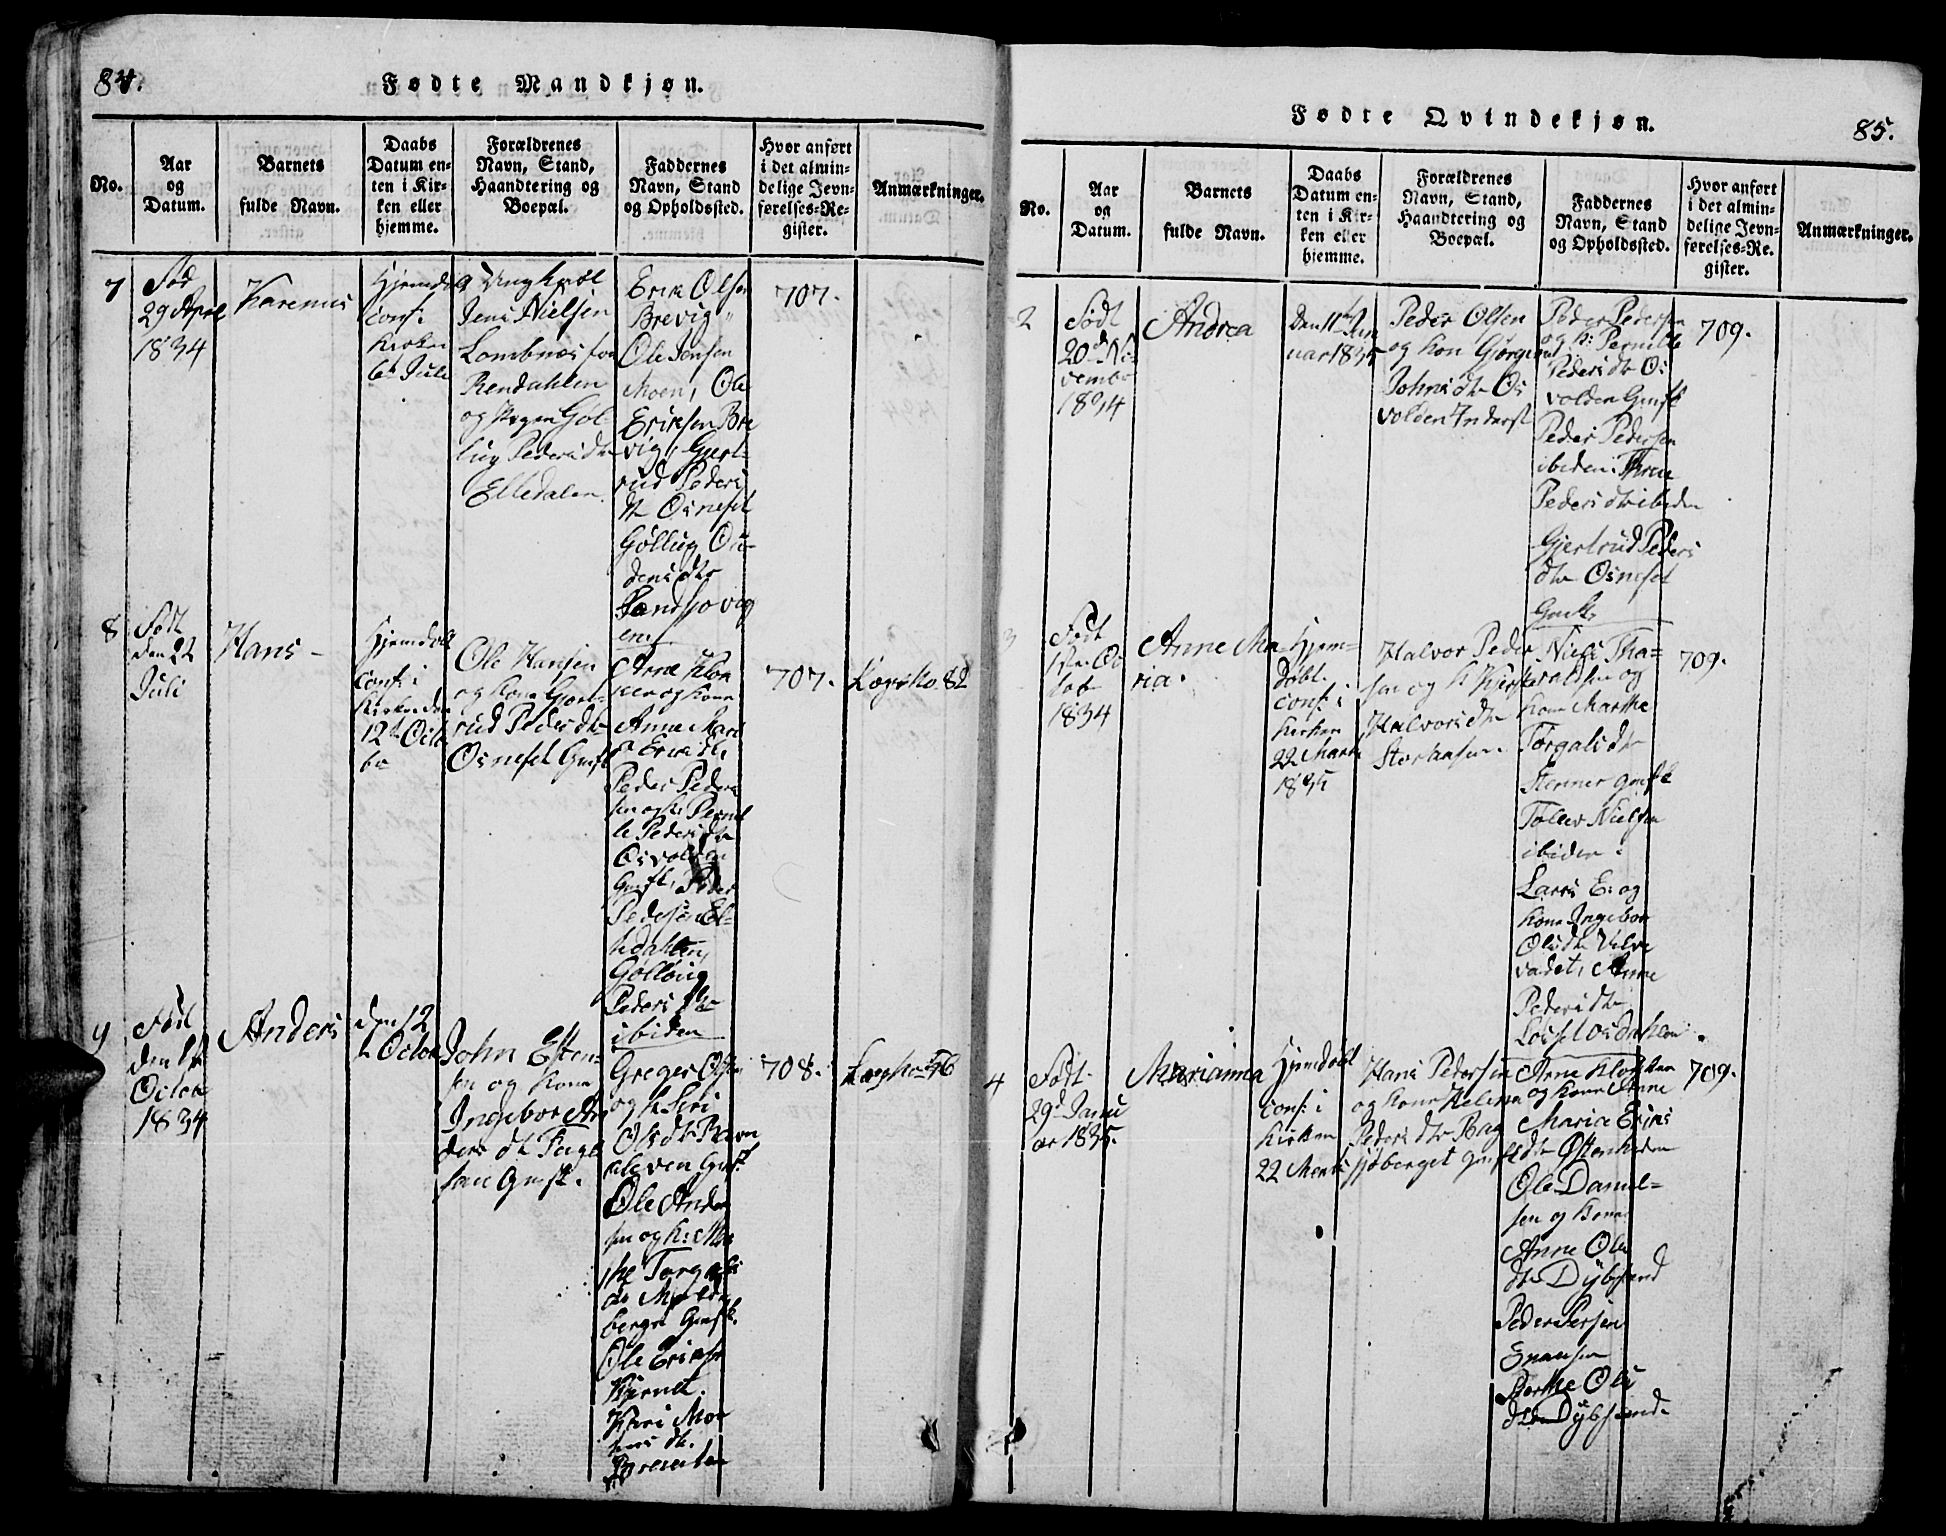 84.
Fødte Mandkjøn.
No.
Aar
og
Datum.
Barnets
fulde Navn.
Daabs
Datum en-
ten i Kir-
ken eller
hjemme.
Forældrenes
Navn, Stand,
Haandtering og
Boepæl.
Faddernes
Navn, Stand
og Opholdssted.
Hvor anført
i det almin-
delige Jevn-
førelses-Re-
gister.
Anmærkninger.
7
Fød
29 April
1834
Karenus
Hjemdøb
conf: i
Kirken
6t Juli
Ungkarl
Jens Nielsen
Lombnæs fra
Rendahlen
og Pigen Gol-
lug Pedersdtr
Elledalen.
Erik Olsen
Brevig
Ole Jensen
Moen, Ole
Eriksen Bre
vig, Gjert-
rud Peders
dt Osneset
Gøllug Ou-
densdtr
Sandsovig
en
707.
8
Født
den 22
Juli
Hans -
Hjemdøbt
conf: i
Kirken den
12te Octo
br
Ole Hansen
og Kone Gjert-
rud Pedersdtr
Osneset Gmfl
Arne Klok
ker og Kone
Anne Mari
a Ericsdt,
Peder Peder
sen og k: Pernil
le Pedersdtr
Osvolden
Gmfl, Peder
Pedersen El-
ledahlen,
Gølløug
Pedersdtr
ibiden
707.
Lægsno. 82
9
Født
den 1st
Octobr
1834
Anders
den 12
t Octobr
John Esten-
sen og Kone
Ingebor An
ders dt Fage
Gmfl.
Greger Olsen
og k. Siri
Olsdtr Ravn
aleven Gmfl
Ole Ander
sen og k: Mar
the Torgals
dt Morten
berget Gmfl.
Ole Ericsen
Kjernet.
Kari Mor
tens dt.
708.
Lægsno 76
85.
Fødte Qvindekjøn.
No.
Aar
og
Datum.
Barnets
fulde Navn.
Daabs
Datum en-
ten i Kir-
ken eller
hjemme.
Forældrenes
Navn, Stand,
Haandtering og
Boepæl.
Faddernes
Navn, Stand
og Opholdssted.
Hvor anført
i det almin-
delige Jevn-
førelses-Re-
gister.
Anmærkninger.
2
Født
20d No
vembr
1834
Andrea
den 11te Jan
uar 1835
Peder Olsen
og Kon Gjørgine
Johnsdtr Os
volden Inderst
Peder Pedersen
og k: Pernille
Pedersdtr Os
volden Gmfl
Peder Pedersen
ibiden. Thrine
Pedersdtr ibiden
Gjertrud Peders
dtr Osneset
Gmfl.
709.
3
Født
1ste Oc
tobr
1834
Anne Ma
ria.
Hjem-
døbt.
conf: i
Kirken
22 Marts
1835
Halvor Peder
sen og K Kjersti
Halvorsdtr
Storhansen.
Niels Tha-
raldsen og
Kone Marthe
Torgalsdtr
Stenner Gmfl
Tollev Nielsen
ibiden.
Lars E: og
Kone Ingebor
Olsdtr Velve
vadet, Anne
Pedersdtr
Losset Osdahlen
709.
4
Født
29d Janu
ar 1835.
Marianna
Hjemdøbt
conf: i
Kirken
22 Marts
Hans Pedersen
og Kone Helena
Pedersdtr Bag
sjøberget Gmfl
Arne Klokker
og Kone Anne
Maria Erics
dtr Østenheden
Ole Daniel-
sen og Kone
Anne Ols
dtr Dybsand
Peder Persen
Gransen
Berthe Ols
dtr Dybsand.
709.